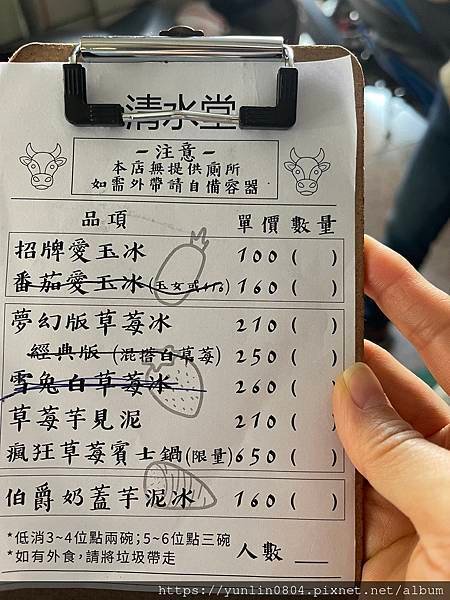 清水堂
-注意-
本店無提供廁所
如需外帶請自備容器
品項 單價 數量
招牌愛玉冰 100 ( )
番茄愛玉冰(玉女或416) 160 ( )
夢幻版草莓冰 210 ( )
經典版 (混搭白草莓) 250 ( )
雪兔白草莓冰 260 ( )
草莓芋見泥 210 ( )
瘋狂草莓賓士鍋(限量) 650 ( )
伯爵奶蓋芋泥冰 160 ( )
*低消3~4位點兩碗;5~6位點三碗
*如有外食,請將垃圾帶走
人數 __
https://yunlin0804.pixnet.net/album